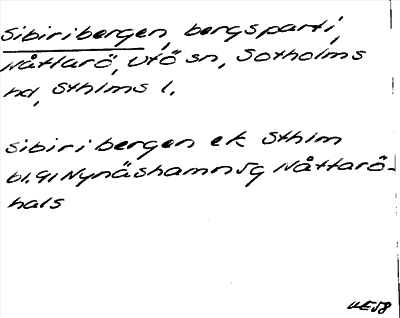 Sibiribergen, bergsparti,
Nåttarö, Utö sn, Sotholms
hd, Sthlms l.
Sibiribergen ek Sthlm
bl. 91 Nynäshamn Sg Nåttarö-
hals